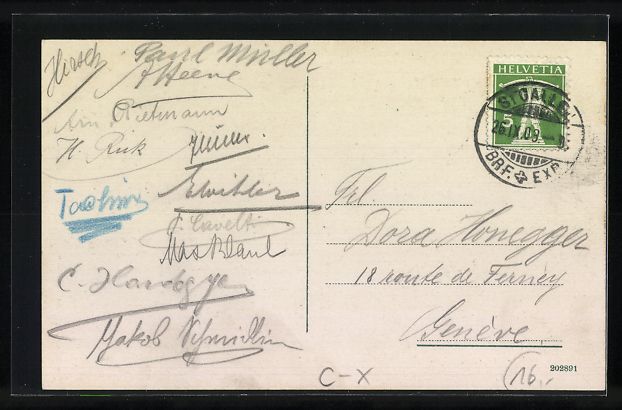 Hirsch
Paul Müller
A Heene
Rietmann
H. Rick
Taohin
J. Cavelti
Max Blaul
C. Hardegger
Jakob Schmidlin
HELVETIA
5
ST GALLEN
26.IX.09.
BRF. EXP.
Frl.
Dora Honegger
18 route de Ferney
Genève.
202891
C-X
16.-